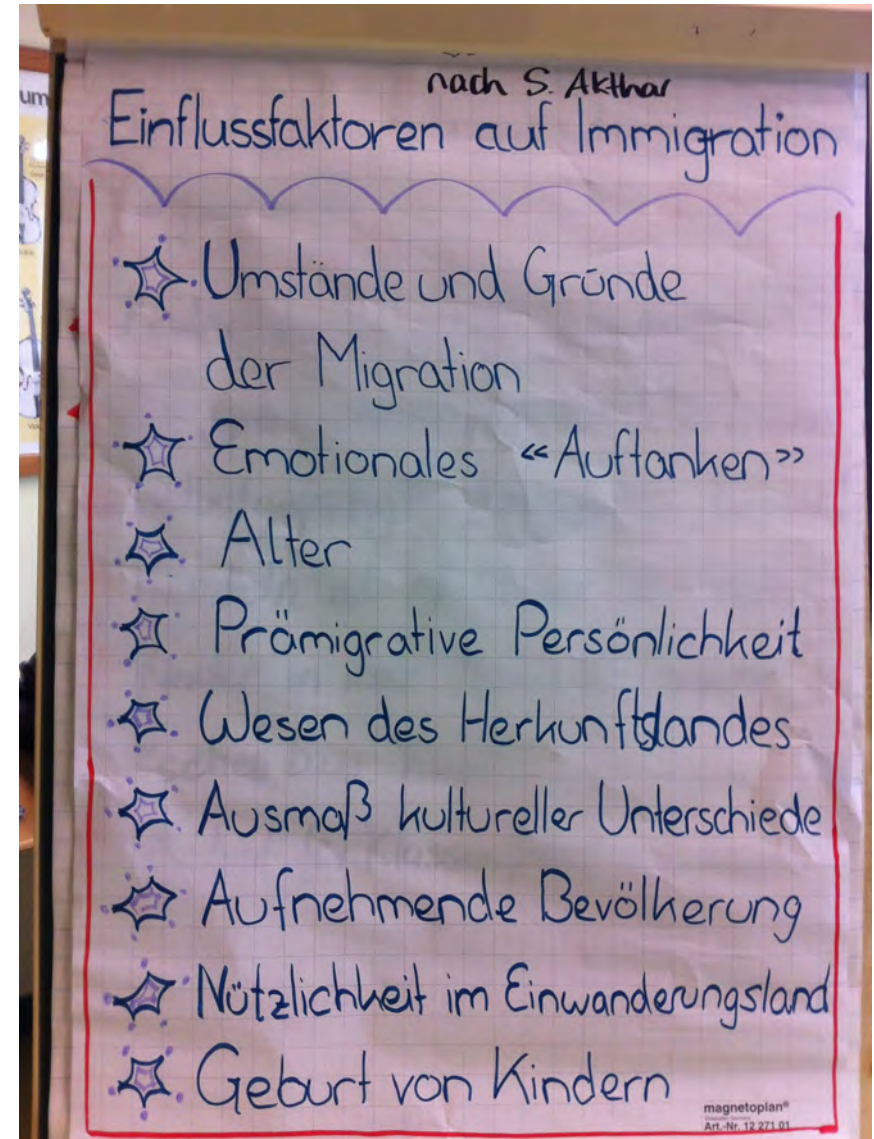 um
nach S. Akthar
Einflussfaktoren auf Immigration
Umstände und Gründe
der Migration
Emotionales «Auftanken»
Alter
Prämigrative Persönlichkeit
Wesen des Herkunftslandes
Ausmaß kultureller Unterschiede
Aufnehmende Bevölkerung
Nützlichkeit im Einwanderungsland
Geburt von Kindern
magnetoplan®
Art.-Nr. 12 271 01